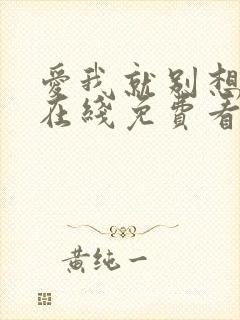 愛我就别想
在綫免費看
黄纯一